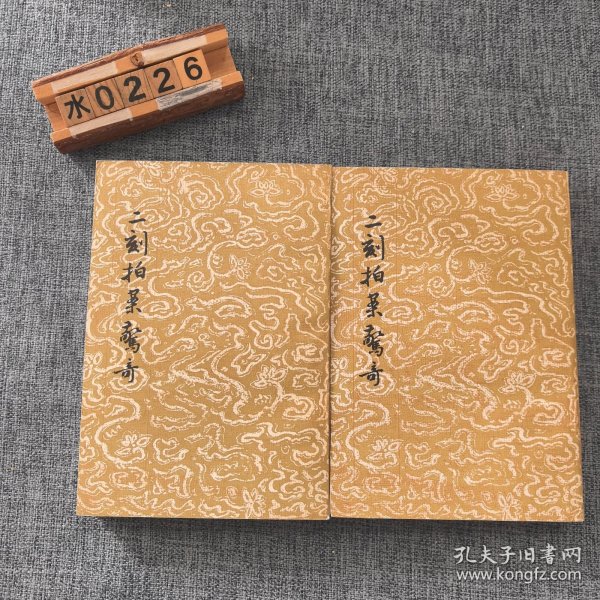 水0226
二刻拍案驚奇
二刻拍案驚奇
孔夫子旧書网
www.kongfz.com